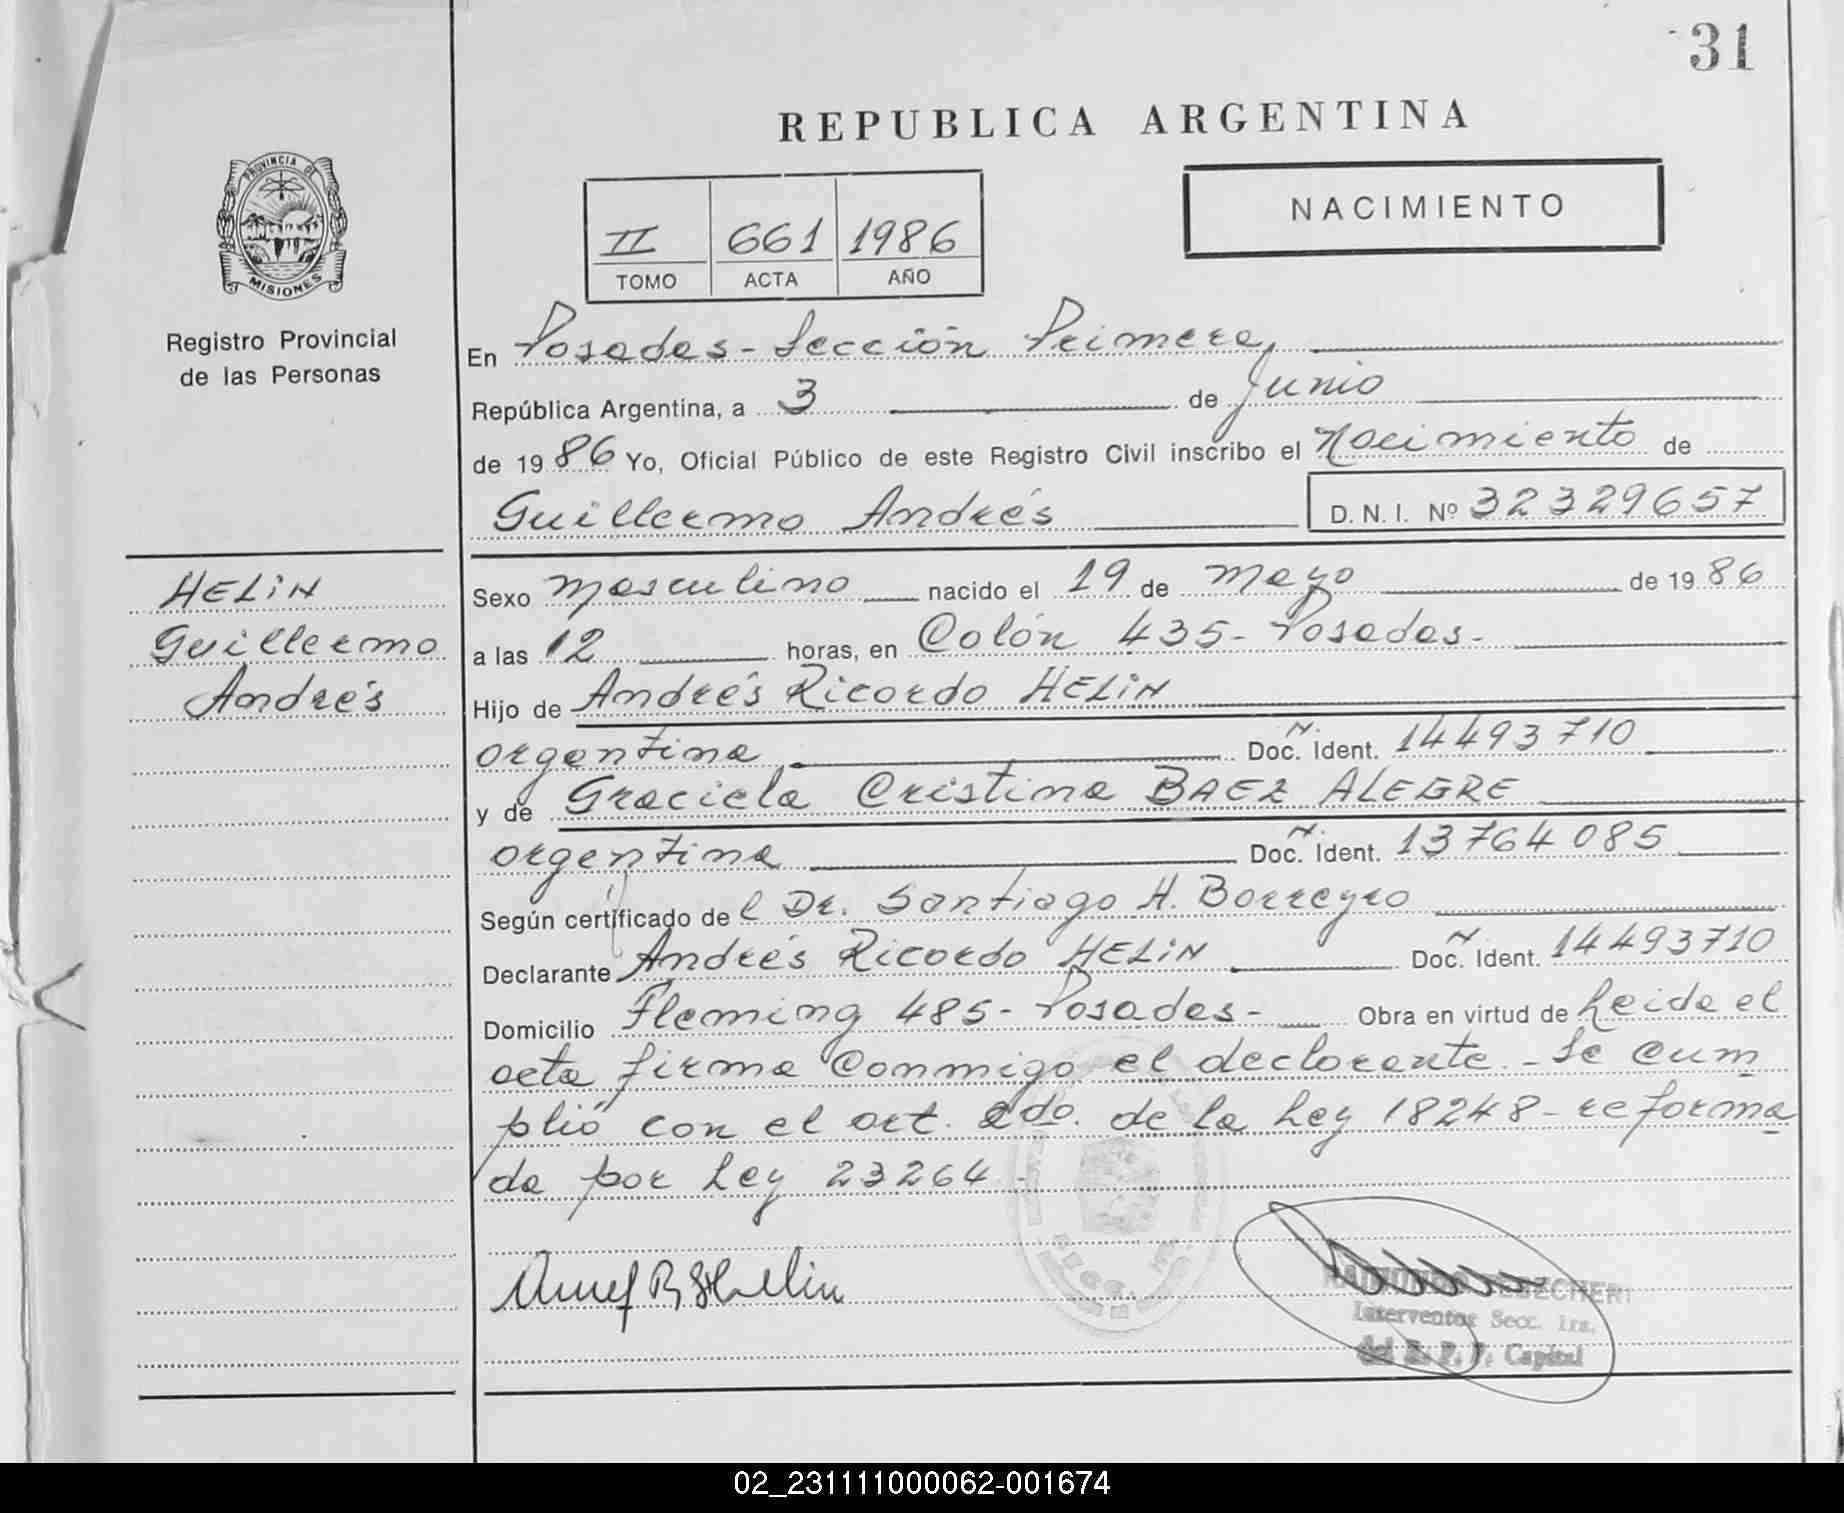 31
REPUBLICA ARGENTINA
PROVINCIA DE
MISIONES
Registro Provincial
de las Personas
II 661 1986
TOMO ACTA AÑO
NACIMIENTO
En Posadas - Sección Primera,
República Argentina, a 3 de Junio
de 1986 Yo, Oficial Público de este Registro Civil inscribo el Nacimiento de
Guillermo Andrés D. N. I. Nº 32329657
HELiN
Guillermo
Andrés
Sexo masculino nacido el 19 de mayo de 1986
a las 12 horas, en Colón 435 - Posadas -
Hijo de Andrés Ricardo HELiN
argentina Doc. Ident. 14493710
y de Graciela Cristina BAEZ ALEGRE
argentina Doc. Ident. 13764085
Según certificado de l Dr. Santiago H. Borreyro
Declarante Andrés Ricardo HELiN Doc. Ident. 14493710
Domicilio Fleming 485 - Posadas - Obra en virtud de Leida el
acta firma conmigo el declarante. - Se cum
plió con el art. 2do. de la Ley 18248 - reforma
da por Ley 23264 -
Interventor Secc. 1ra.
del R. P. P. Capital
02_231111000062-001674